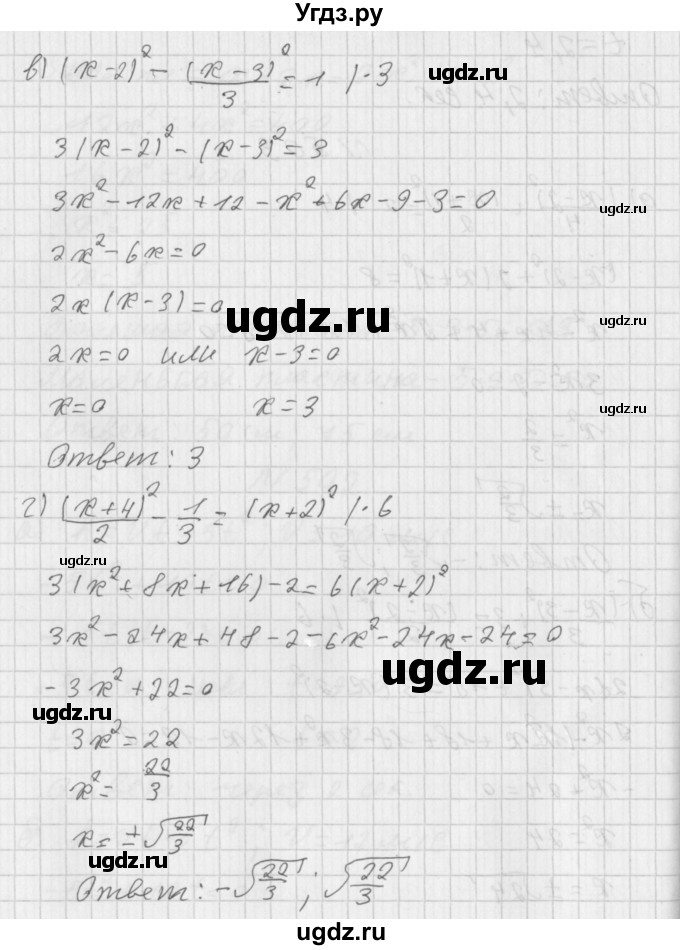 Угдз.ру
в) (x-2)² - (x-3)²/3 = 1 |·3
ugdz.ru
3(x-2)² - (x-3)² = 3
3x² - 12x + 12 - x² + 6x - 9 - 3 = 0
ugdz.ru
2x² - 6x = 0
2x(x-3) = 0
ugdz.ru
ugdz.ru
2x = 0 или x-3 = 0
x = 0 x = 3
ugdz.ru
Ответ: 3
г) (x+4)²/2 - 1/3 = (x+2)² |·6
ugdz.ru
ugdz.ru
3(x² + 8x + 16) - 2 = 6(x+2)²
3x² - 24x + 48 - 2 - 6x² - 24x - 24 = 0
ugdz.ru
-3x² + 22 = 0
ugdz.ru
3x² = 22
x² = 22/3
ugdz.ru
x = ±√22/3
ugdz.ru
Ответ: -√22/3; √22/3
ugdz.ru